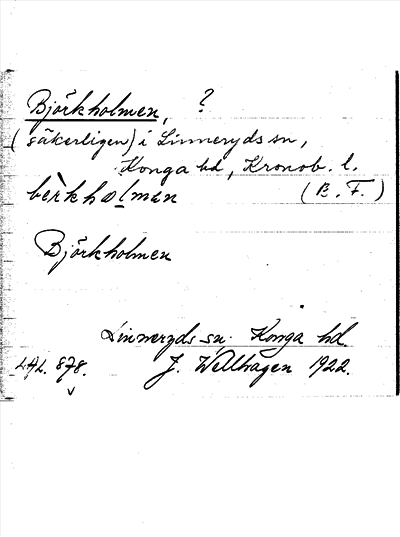 Björkholmen, ?
(säkerligen) i Linneryds sn,
Konga hd, Kronob. l.
bèrkhɷlmən (B. F.)
Björkholmen
Linneryds sn. Konga hd.
J. Wellhagen 1922.
878.